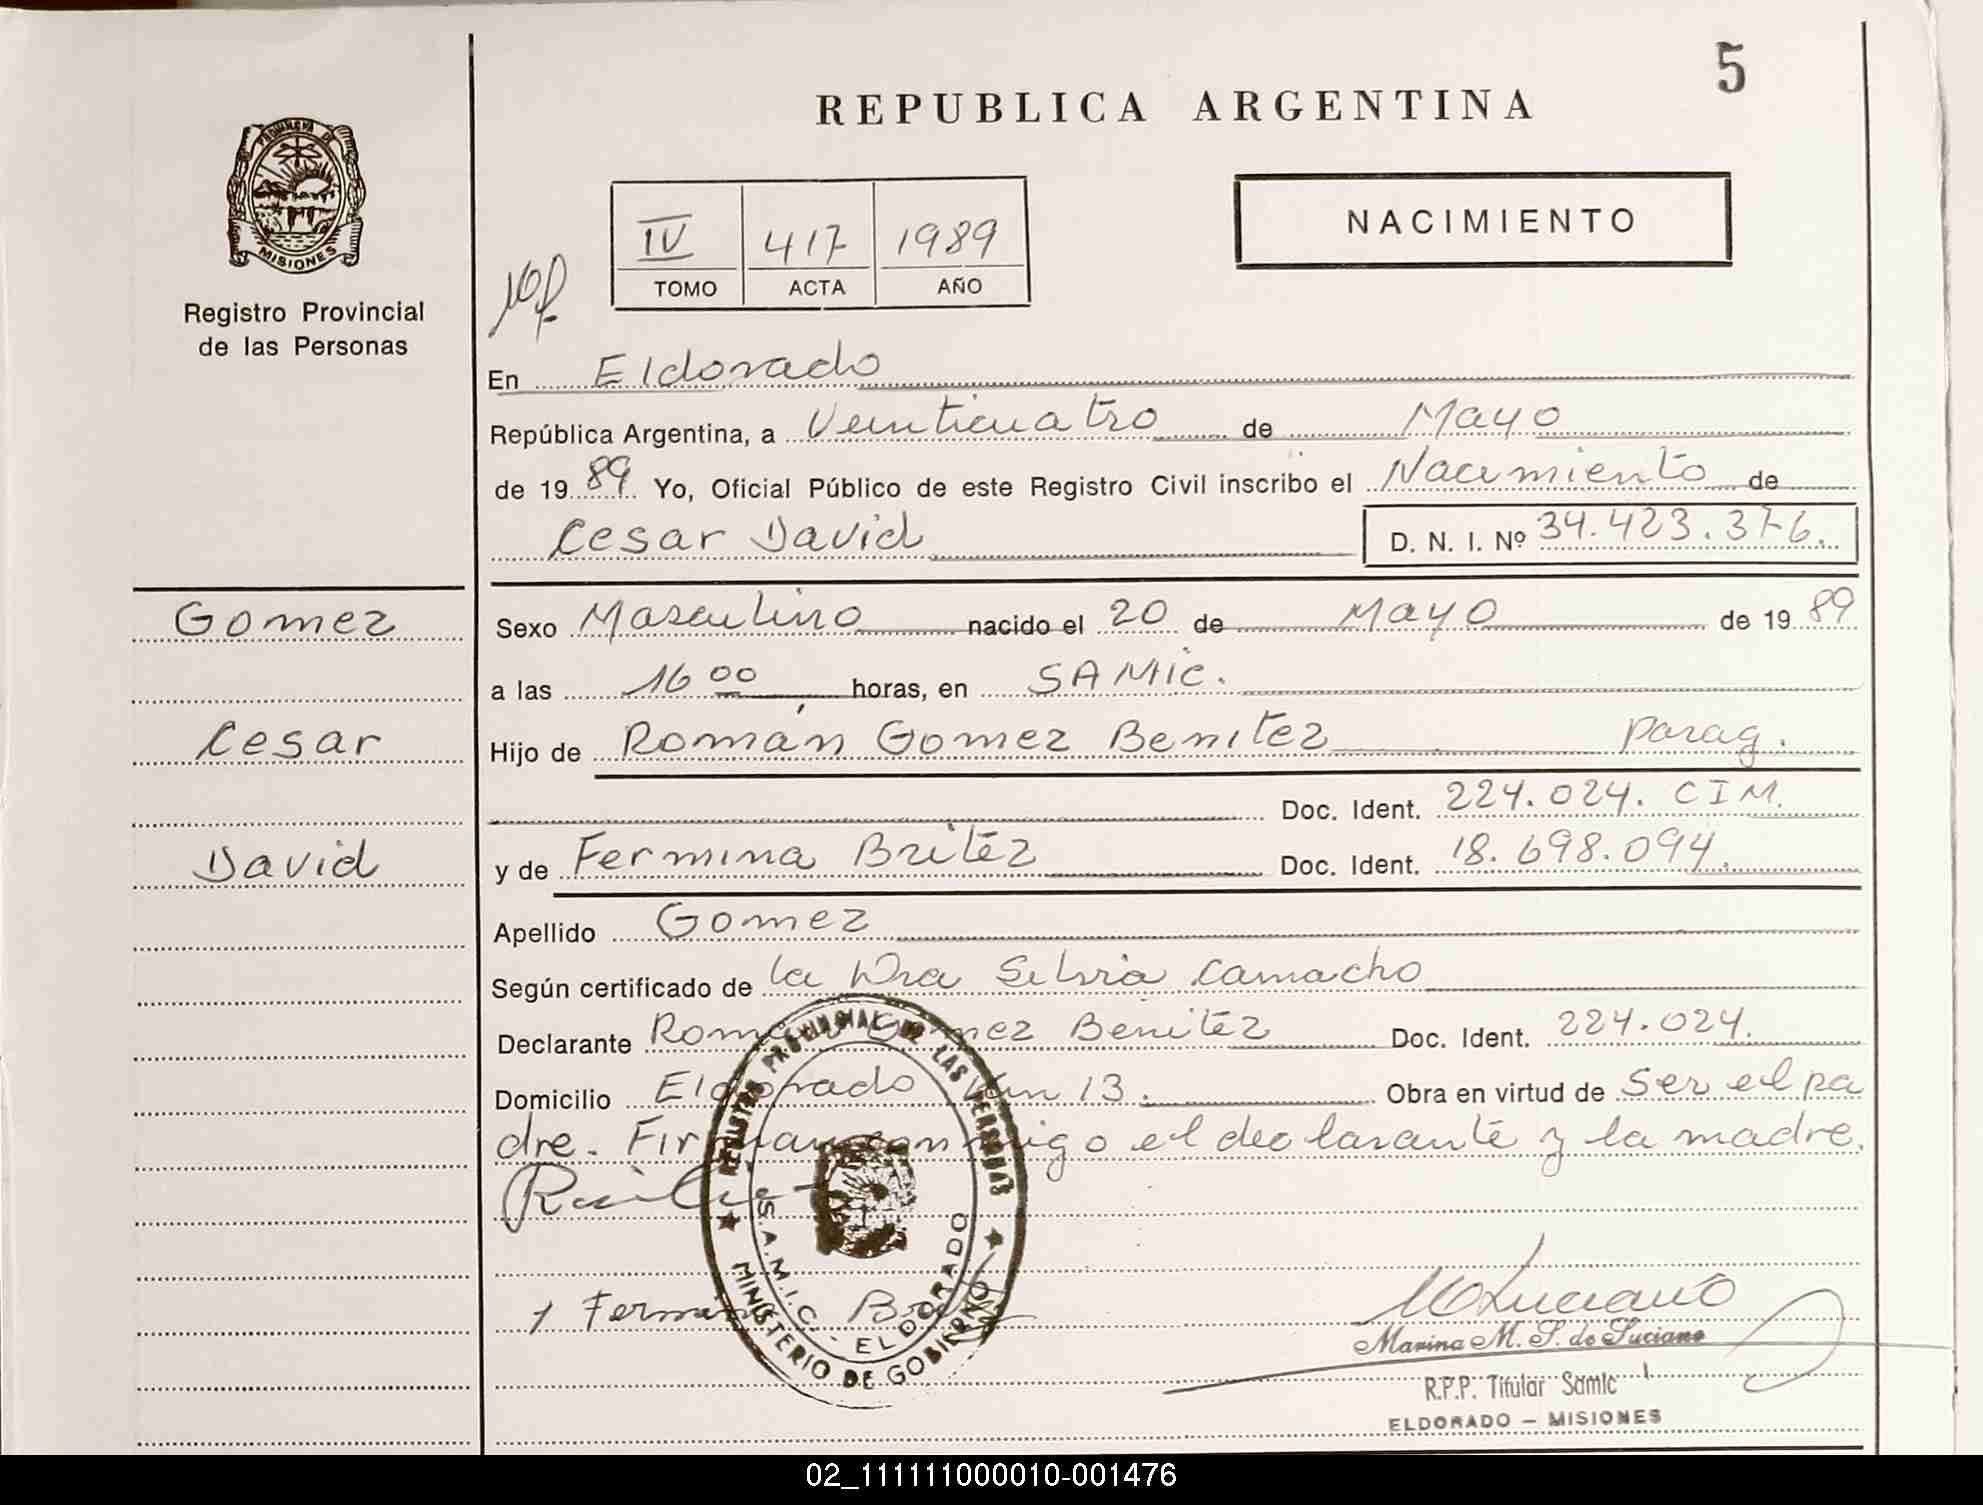 5
REPUBLICA ARGENTINA
PROVINCIA DE
MISIONES
Registro Provincial
de las Personas
IV 417 1989
TOMO ACTA AÑO
NACIMIENTO
En Eldorado
República Argentina, a Veinticuatro de Mayo
de 1989 Yo, Oficial Público de este Registro Civil inscribo el Nacimiento de
Cesar David D. N. I. Nº 34.423.376.
Gomez
Cesar
David
Sexo Masculino nacido el 20 de Mayo de 1989
a las 16 00 horas, en SAMIC.
Hijo de Román Gomez Benitez parag.
Doc. Ident. 224.024. CIM.
y de Fermina Britez Doc. Ident. 18.698.094.
Apellido Gomez
Según certificado de la Dra Silvia Camacho
Declarante Román Gomez Benitez Doc. Ident. 224.024.
Domicilio Eldorado Km 13. Obra en virtud de ser el pa
dre. Firman conmigo el declarante y la madre.
REGISTRO PROVINCIAL DE LAS PERSONAS
S.A.M.I.C. - ELDORADO
MINISTERIO DE GOBIERNO
Luciano
Marina M. S. de Luciano
R.P.P. Titular Samic
ELDORADO - MISIONES
02_111111000010-001476